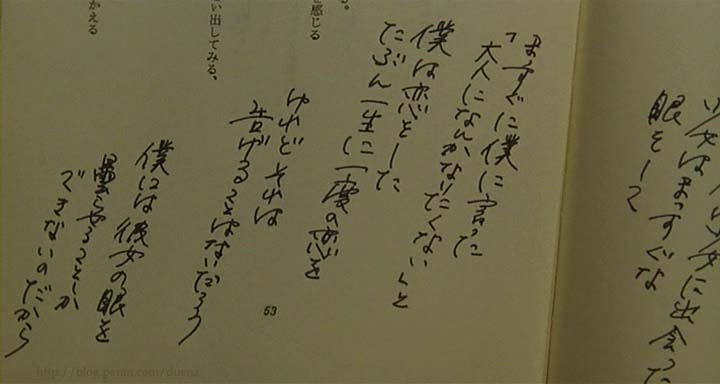 少女に出会った
少女はまっすぐな
眼をして
まっすぐに僕に言った
「大人になんかなりたくない」と
僕は恋をした
たぶん一生に一度の恋を
けれどそれは
告げることはないだろう
僕には彼女の眼を
曇らせることしか
できないのだから
る。
を感じる
い出してみる、
かえる
53
http://blog.paran.com/duena